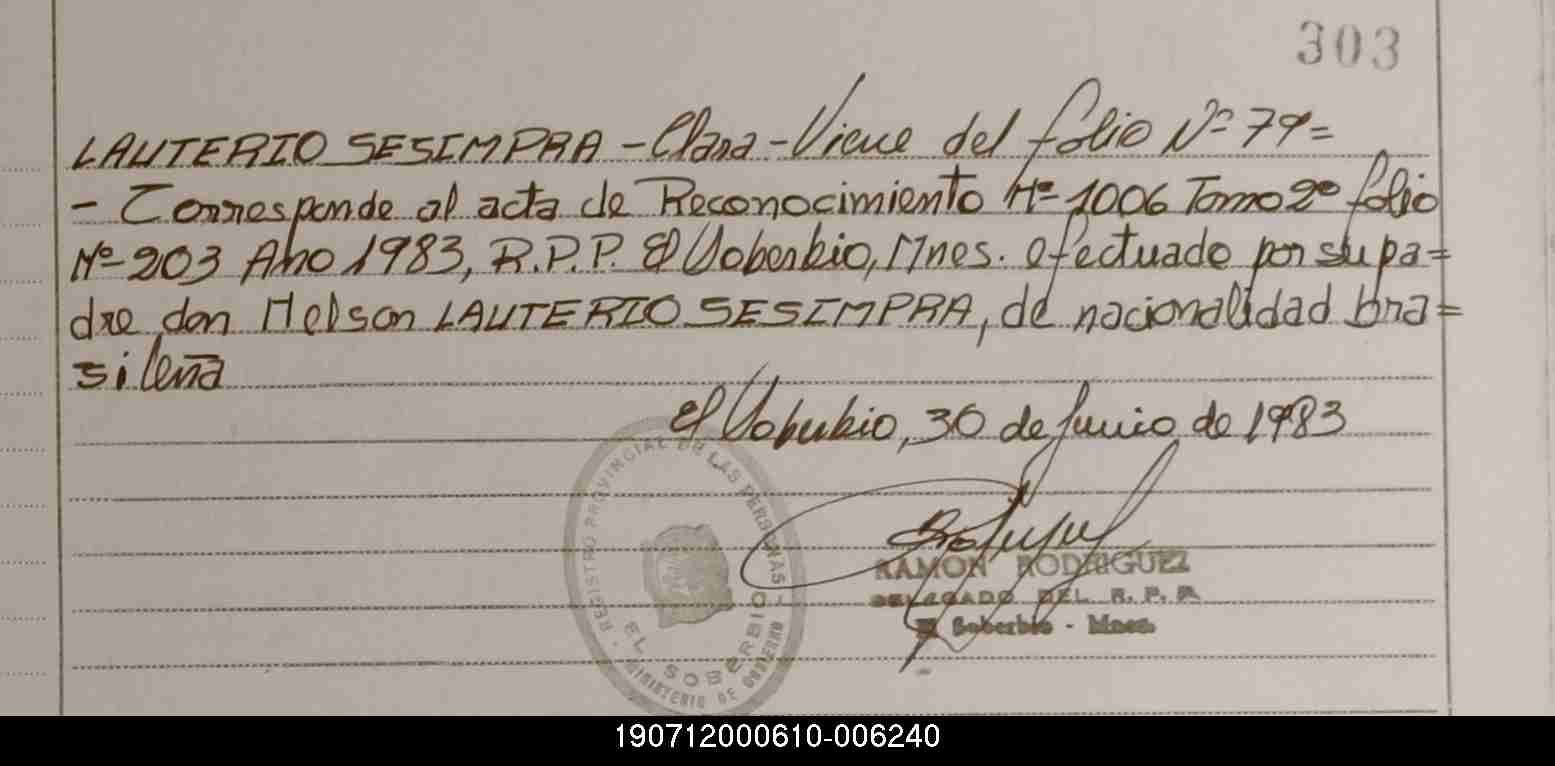 303
LAUTERIO SESIMPRA - Clara - Viene del folio Nº 79=
- Corresponde al acta de Reconocimiento Nº 1006 Tomo 2º folio
Nº 203 Año 1983, R.P.P. El Soberbio, Mnes. efectuado por su pa=
dre don Nelson LAUTERIO SESIMPRA, de nacionalidad bra=
sileña
El Soberbio, 30 de Junio de 1983
REGISTRO PROVINCIAL DE LAS PERSONAS
EL SOBERBIO
MINISTERIO DE GOBIERNO
RAMON RODRIGUEZ
DELEGADO DEL R. P. P.
El Soberbio - Mnes.
190712000610-006240